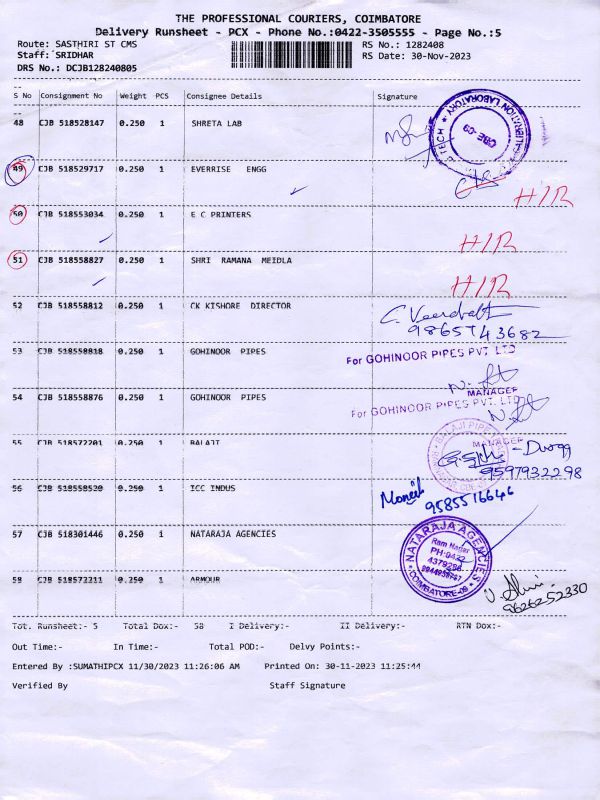 THE PROFESSIONAL COURIERS, COIMBATORE
Delivery Runsheet - PCX - Phone No.:0422-3505555 - Page No.:5
Route: SASTHIRI ST CMS RS No.: 1282408
Staff: SRIDHAR RS Date: 30-Nov-2023
DRS No.: DCJB128240805
S No Consignment No Weight PCS Consignee Details Signature
48 CJB 518528147 0.250 1 SHRETA LAB
TECH CBE-09
49 CJB 518529717 0.250 1 EVERRISE ENGG
H/R
50 CJB 518553034 0.250 1 E C PRINTERS
H/R
51 CJB 518558827 0.250 1 SHRI RAMANA MEIDLA
H/R
52 CJB 518558812 0.250 1 CK KISHORE DIRECTOR
9865743682
53 CJB 518558818 0.250 1 GOHINOOR PIPES
For GOHINOOR PIPES PVT. LTD
MANAGER
54 CJB 518558876 0.250 1 GOHINOOR PIPES
For GOHINOOR PIPES PVT. LTD
MANAGER
55 CJB 518572201 0.250 1 BALAJI
BALAJI PIPE
9597932298
56 CJB 518558520 0.250 1 ICC INDUS
Monesh
9585516646
57 CJB 518301446 0.250 1 NATARAJA AGENCIES
NATARAJA AGENCIES
Ram Nagar
PH:0422
COIMBATORE-09
58 CJB 518572211 0.250 1 ARMOUR
9626252330
Tot. Runsheet:- 5 Total Dox:- 58 I Delivery:- II Delivery:- RTN Dox:-
Out Time:- In Time:- Total POD:- Delvy Points:-
Entered By :SUMATHIPCX 11/30/2023 11:26:06 AM Printed On: 30-11-2023 11:25:44
Verified By Staff Signature